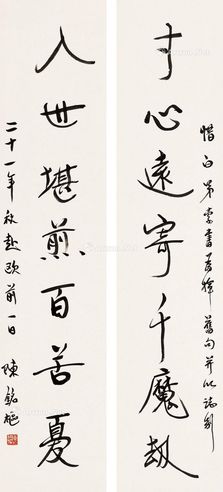 惜白弟索書為擇舊句并以誌別
寸心遠寄千魔劫
入世堪煎百苦憂
二十一年秋赴歐前一日 陳銘樞